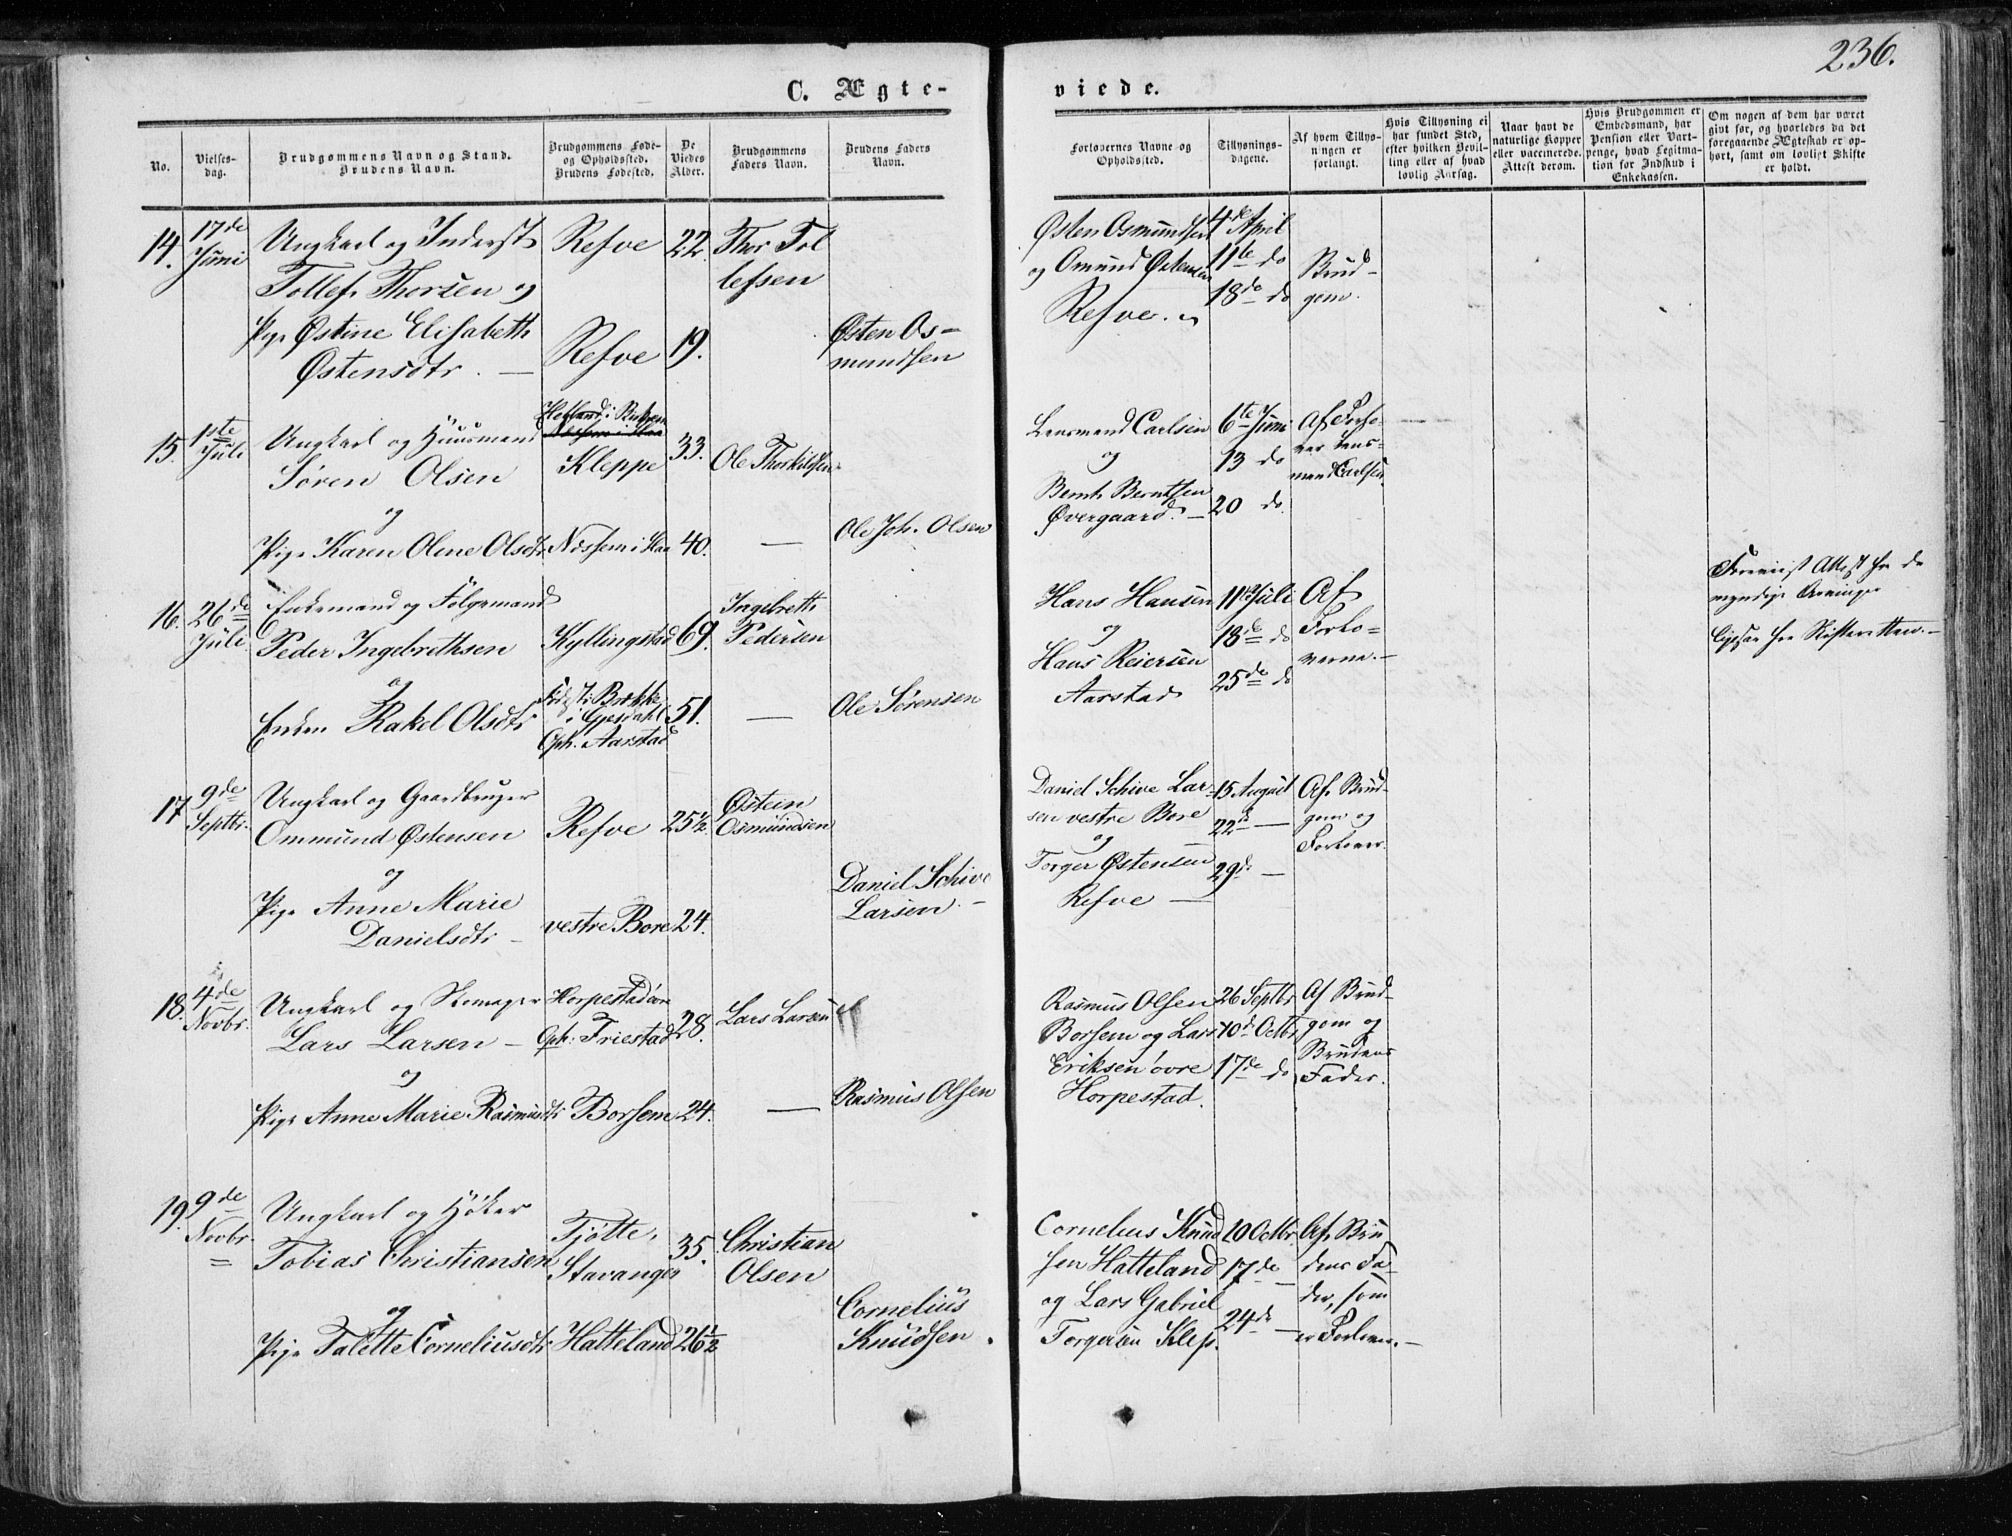 236.
C. Ægte-
viede.
No.
Vielses-
dag.
Brudgommens Navn og Stand.
Brudens Navn.
Brudgommens Føde-
og Opholdssted.
Brudens Fødested.
De
Viedes
Alder.
Brudgommens
Faders Navn.
Brudens Faders
Navn.
Forlovernes Navne og
Opholdssted.
Tillysnings-
dagene.
Af hvem Tillys-
ningen er
forlangt.
Hvis Tillysning ei
har fundet Sted,
efter hvilken Bevil-
ling eller af hvad
lovlig Aarsag.
Naar havt de
naturlige Kopper
eller vaccinerede.
Attest derom.
Hvis Brudgommen er
Embedsmand, har
Pension eller Vart-
penge, hvad Legitma-
tion for Indskud i
Enkekassen.
Om nogen af dem har været
gift før, og hvorledes da det
foregaaende Ægteskab er op-
hørt, samt om lovligt Skifte
er holdt.
14.
17de
Juni
Ungkarl og Inderst
Tollef Thorsen og
Pige Østine Elisabeth
Østensdtr. —
Refve
Refve
22.
19.
Thor Tol
lefsen
Østen Os-
mundsen
Østen Osmundsen
og Omund Østensen
Refve.
4de April
11te do
18de do
Brud-
gom.
15.
1ste
Juli
Ungkarl og Huusmand
Søren Olsen
og
Pige Karen Olene Olsdtr
Kleppe
Nærhem i Haa
33.
40.
Ole Thorkildsen
—
Ole Joh. Olsen
Lensmand Carlsen
og
Bernh. Berntsen
Øvergaard. —
6te Juni
13 do
20 do.
Af Forlo-
ver Lens-
mand Carlsen.
16.
26de
Juli
Enkemand og Følgemand
Peder Ingebrethsen
og
Enken Rakel Olsdtr
Kyllingstad
Fødest: Brekke
i Gjesdahl
Oph. Aarstad
69.
51.
Ingebreth
Pedersen
—
Ole Sørensen
Hans Hansen
og
Hans Reiersen
Aarstad
11te Juli
18de do
25de do
Af
Forlo-
verne. —
Foreviist Attest fra de
myndige Arvinger
ligesaa fra Skifteretten. —
17
9de
Septbr.
Ungkarl og Gaardbruger
Ommund Østensen
og
Pige Anne Marie
Danielsdtr —
Refve
vestre Bore
25½.
24.
Østein
Osmundsen
Daniel Schive
Larsen. —
Daniel Schive Lar-
sen vestre Bore
og
Torger Østensen
Refve —
15 August
22de —
29de —
Af Brud-
gom og
Forlover.
18.
4de
Novbr.
Ungkarl og Skomager
Lars Larsen —
og
Pige Anne Marie Rasmusdtr
Horpestad øvre
Oph: Friestad
Borsem
28.
24.
Lars Larsen
—
Rasmus Olsen
Rasmus Olsen
Borsem og Lars
Eriksen øvre
Horpestad.
26 Septbr
10de Octbr
17de do
Af Brud-
gom og
Brudens
Fader.
19.
9de
Novbr.
Ungkarl og Høker
Tobias Christiansen
og
Pige Talette Corneliusdtr
Tjøtte,
Stavanger
Hatteland
35.
26½
Christian
Olsen
Cornelius
Knudsen.
Cornelius Knud
sen Hatteland
og Lars Gabriel
Torgersen Klep.
10 Octbr.
17de —
24de —
Af Bru
dens Fa-
der, som
er Forlover. —